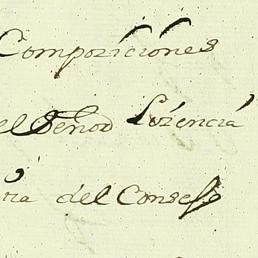 Compoziciones
el Señor Lizencia
ra del Consejo